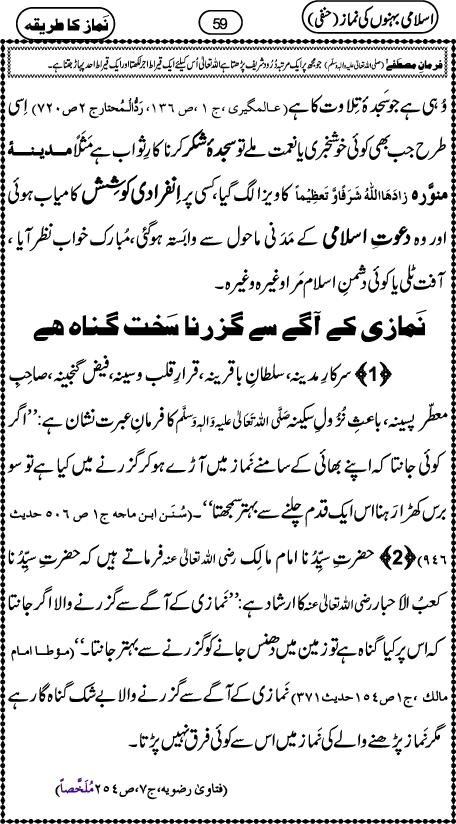 اسلامی بہنوں کی نماز (حنفی) 59 نَماز کا طریقہ
فرمانِ مصطفےٰ (صلی اللہ تعالیٰ علیہ والہٖ وسلّم) جو مجھ پر ایک مرتبہ دُرُود شریف پڑھتا ہے اللہ تعالیٰ اُس کیلئے ایک قیراط اجر لکھتا اور ایک قیراط احد پہاڑ جتنا ہے۔
وُہی ہے جو سَجدۂ تِلاوت کا ہے (عالمگیری ،ج ۱ ،ص ۱۳۶، رَدُّالْمُحتارج ۲ص ۷۲۰) اِسی
طرح جب بھی کوئی خوشخبری یا نعمت ملے تو سجدۂ شکر کرنا کارِ ثواب ہے مَثَلاً مدینۂ
منوَّرہ زادَھَا اللّٰہُ شَرَفًا وَّ تَعظِیْماً کا ویزا لگ گیا، کسی پر اِنفرادی کوشِش کامیاب ہوئی
اور وہ دعوتِ اسلامی کے مَدَنی ماحول سے وابَستہ ہو گئی، مُبارک خواب نظر آیا ،
آفت ٹلی یا کوئی دشمنِ اسلام مَرا وغیرہ وغیرہ۔
نَمازی کے آگے سے گزرنا سَخت گناہ ھے
﴿1﴾ سرکارِ مدینہ، سلطانِ باقرینہ، قرارِ قلب و سینہ، فیض گنجینہ، صاحبِ
معطّر پسینہ، باعثِ نُزُولِ سکینہ صَلَّی اللہ تَعَالیٰ علیہ وَالِہٖ وَسلَّم کا فرمانِ عبرت نشان ہے: ’’اگر
کوئی جانتا کہ اپنے بھائی کے سامنے نَماز میں آڑے ہو کر گزرنے میں کیا ہے تو سو
برس کھڑا رَہنا اس ایک قدم چلنے سے بہتر سمجھتا‘‘۔ (سُنَن ابن ماجه ج۱ ص ۵۰۶ حدیث
۹۴۶) ﴿2﴾ حضرتِ سیِّدُنا امام مالِک رضی اللہ تعالیٰ عنہ فرماتے ہیں کہ حضرتِ سیِّدُنا
کعبُ الاحبار رضی اللہ تعالیٰ عنہ کا ارشاد ہے: ’’نَمازی کے آگے سے گزرنے والا اگر جانتا
کہ اس پر کیا گناہ ہے تو زمین میں دھنس جانے کو گزرنے سے بہتر جانتا۔‘‘ (مؤطا امام
مالك ،ج۱ص ۱۵۴حدیث ۳۷۱) نَمازی کے آگے سے گزرنے والا بے شک گناہ گار ہے
مگر نَماز پڑھنے والے کی نَماز میں اس سے کوئی فرق نہیں پڑتا۔
(فتاویٰ رضویه،ج۷،ص۲۵۴مُلَخَّصاً)